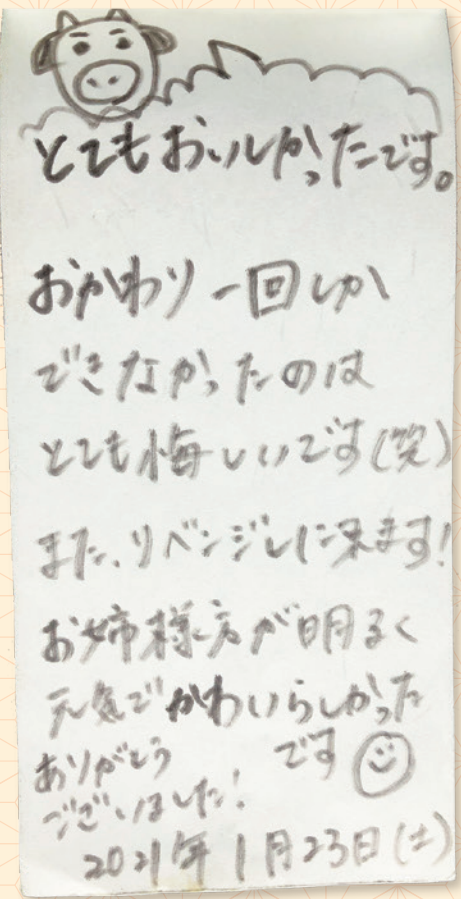 とてもおいしかったです。
おかわり一回しか
できなかったのは
とても悔しいです(笑)
また、リベンジしに来ます!
お姉様方が明るく
元気でかわいらしかった
です
ありがとう
ございました!
2021年1月23日(土)